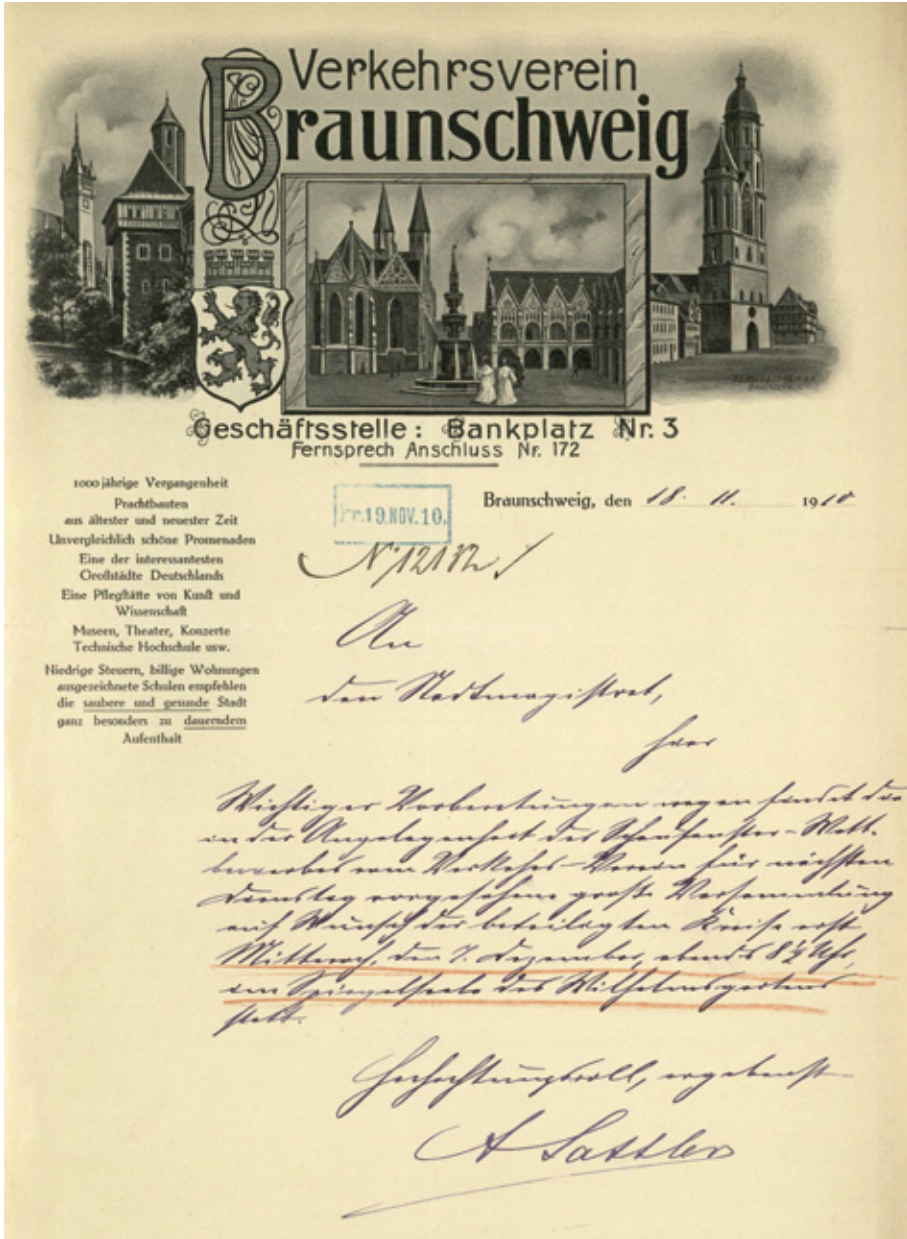 Verkehrsverein
Braunschweig
Geschäftsstelle: Bankplatz Nr. 3
Fernsprech Anschluss Nr. 172
1000jährige Vergangenheit
Prachtbauten
aus ältester und neuester Zeit
Unvergleichlich schöne Promenaden
Eine der interessantesten
Großstädte Deutschlands
Eine Pflegstätte von Kunst und
Wissenschaft
Museen, Theater, Konzerte
Technische Hochschule usw.
Niedrige Steuern, billige Wohnungen
ausgezeichnete Schulen empfehlen
die saubere und gesunde Stadt
ganz besonders zu dauerndem
Aufenthalt
Braunschweig, den 18. 11. 1910
Pr. 19. NOV. 10.
An
den Stadtmagistrat,
hier
Wichtiger Vorberatungen wegen findet die
in der Angelegenheit des Schaufenster-Wett-
bewerbes vom Verkehrs-Verein für nächsten
Dienstag vorgesehene große Versammlung
auf Wunsch der beteiligten Kreise erst
Mittwoch, den 7. Dezember, abends 8½ Uhr,
im Spiegelsaale des Wilhelmsgartens
statt.
Hochachtungsvoll, ergebenst
A Sattler